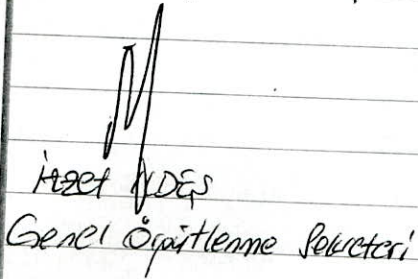 İzzet ALDEŞ
Genel Örgütlenme Sekreteri